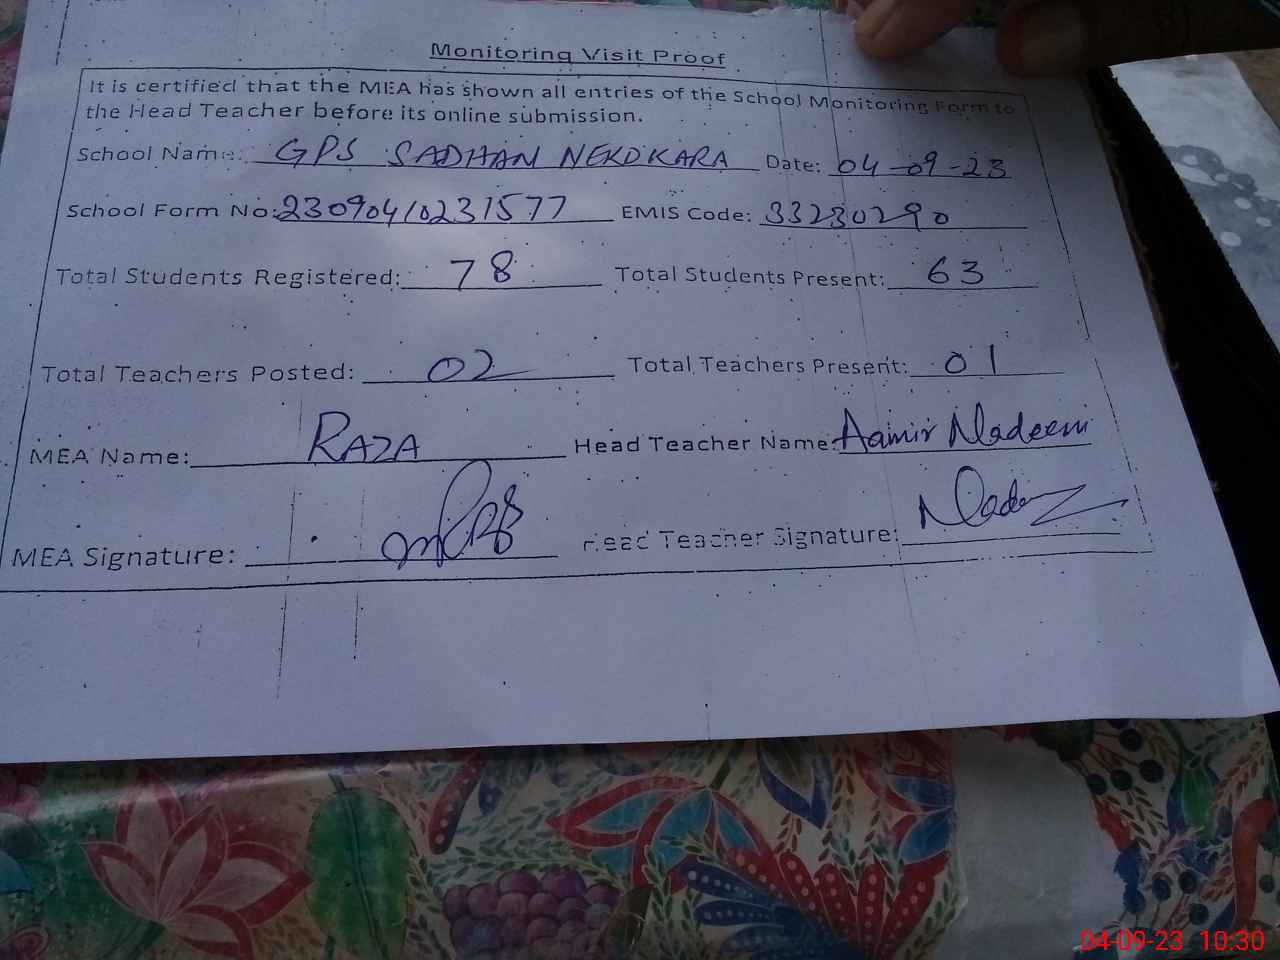 Monitoring Visit Proof
It is certified that the MEA has shown all entries of the School Monitoring Form to
the Head Teacher before its online submission.
School Name: GPS SADHAN NEKOKARA Date: 04-09-23
School Form No: 23090410231577 EMIS Code: 33230290
Total Students Registered: 78 Total Students Present: 63
Total Teachers Posted: 02 Total Teachers Present: 01
MEA Name: RAZA Head Teacher Name: Aamir Nadeem
MEA Signature: Head Teacher Signature:
04-09-23 10:30